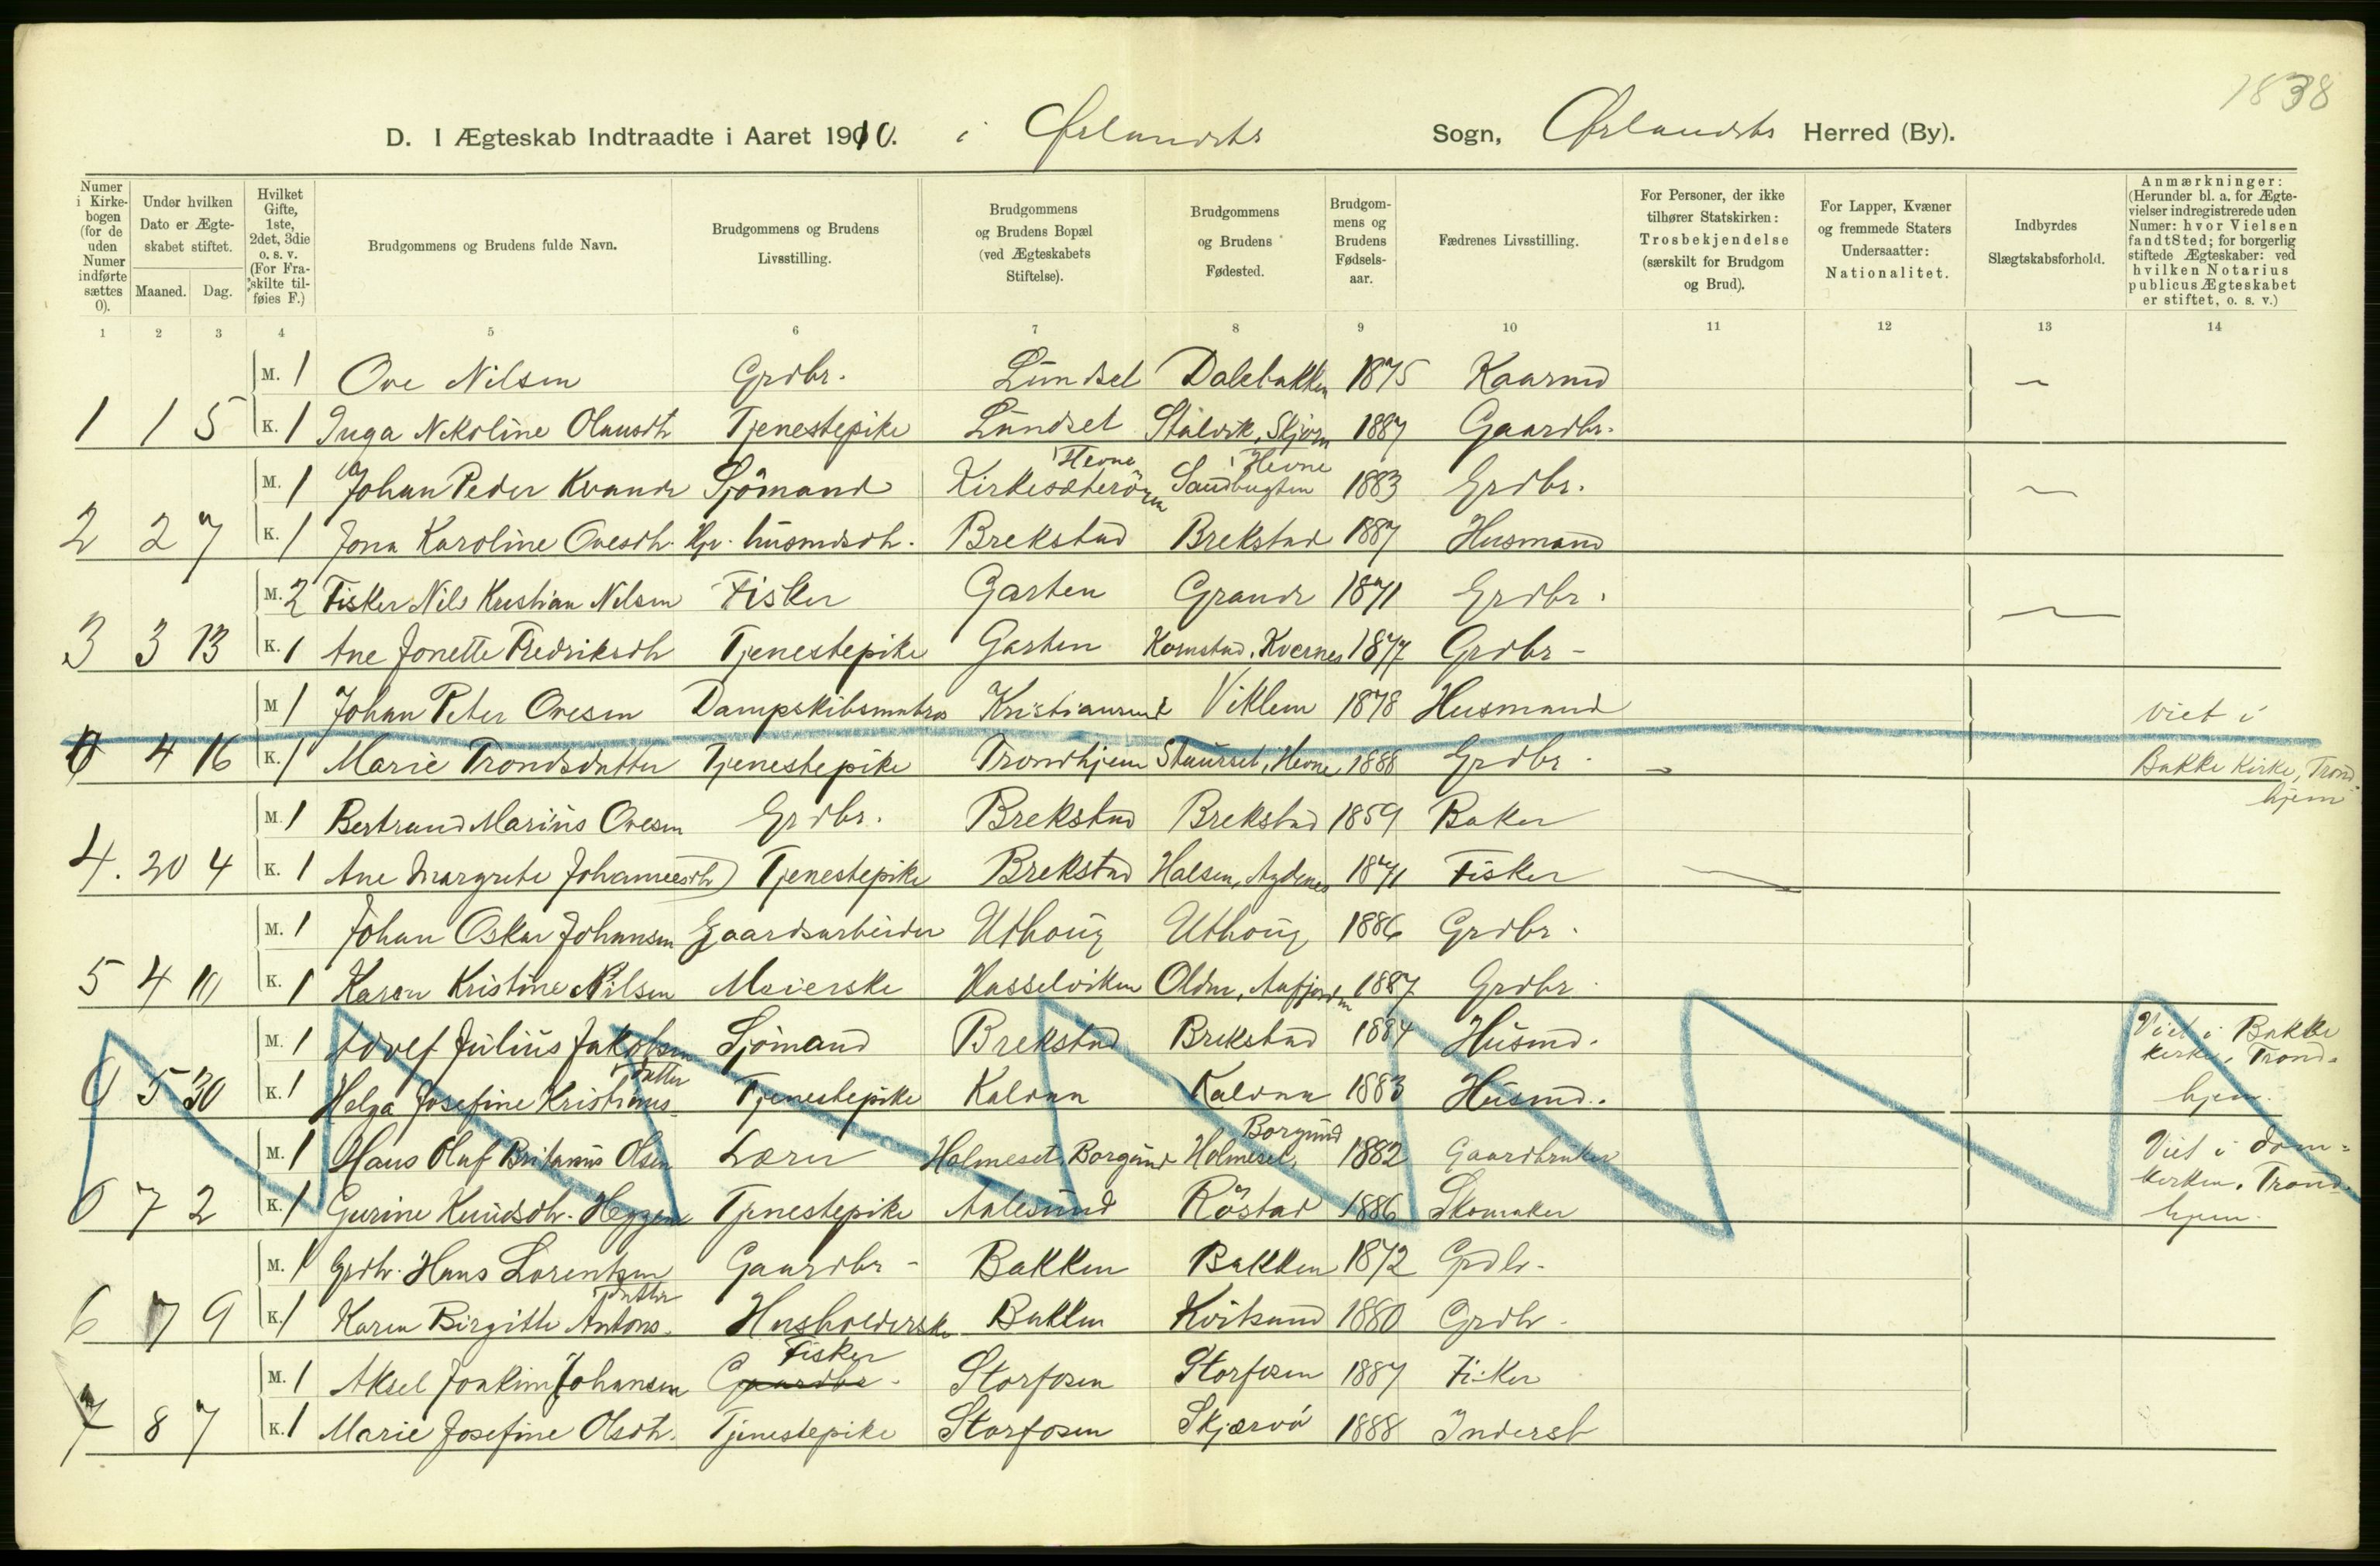 1838
D. I Ægteskab Indtraadte i Aaret 1910. i Ørlandets Sogn, Ørlandets Herred (By).
Numer i Kirkebogen (for de uden Numer indførte sættes 0).
Under hvilken Dato er Ægteskabet stiftet.
Maaned. Dag.
Hvilket Gifte, 1ste, 2det, 3die o. s. v. (For Fraskilte tilføies F.)
Brudgommens og Brudens fulde Navn.
Brudgommens og Brudens Livsstilling.
Brudgommens og Brudens Bopæl (ved Ægteskabets Stiftelse).
Brudgommens og Brudens Fødested.
Brudgommens og Brudens Fødselsaar.
Fædrenes Livsstilling.
For Personer, der ikke tilhører Statskirken: Trosbekjendelse (særskilt for Brudgom og Brud).
For Lapper, Kvæner og fremmede Staters Undersaatter: Nationalitet.
Indbyrdes Slægtskabsforhold.
Anmærkninger: (Herunder bl. a. for Ægtevielser indregistrerede uden Numer: hvor Vielsen fandt Sted; for borgerlig stiftede Ægteskaber: ved hvilken Notarius publicus Ægteskabet er stiftet, o. s. v.)
1 2 3 4 5 6 7 8 9 10 11 12 13 14
M. 1 Ove Nilsen Grdbr. Lundset Dalebakken 1875 Kaarmd
1 1 5 K. 1 Inga Nikoline Olausdtr Tjenestepike Lundset Stålvik, Skjørn 1887 Gaardbr.
M. 1 Johan Peder Kvande Sjömand Kirkesæterören Hevne Sandbugten Hevne 1883 Grdbr.
2 2 7 K. 1 Jona Karoline Ovesdtr. Hjv. husmdsdtr. Brekstad Brekstad 1887 Husmand
M. 2 Fisker Nils Kristian Nilsen Fisker Garten Grande 1871 Grdbr.
3 3 13 K. 1 Ane Jonette Fredriksdtr Tjenestepike Garten Kornstad, Kvernes 1877 Grdbr -
M 1 Johan Peter Ovesen Dampskibsmatros Kristiansund Viklem 1878 Husmand Viet i
0 4 16 K. 1 Marie Trondsdatter Tjenestepike Trondhjem Staurset, Hevne 1888 Grdbr. Bakke Kirke, Trondhjem
M. 1 Bertrand Marius Ovesen Grdbr. Brekstad Brekstad 1859 Baker
4. 20 4 K. 1 Ane Margrete Johannesdtr Tjenestepike Brekstad Halsen, Agdenes 1871 Fisker
M. 1 Johan Oskar Johansen Gaardsarbeider Uthoug Uthoug 1886 Grdbr.
5 4 10 K. 1 Karen Kristine Nilsen Meierske Hasselviken Olden, Aafjorden 1887 Grdbr
M. 1 Adolf Julius Jakobsen Sjömand Brekstad Brekstad 1884 Husmd. Viet i Bakke kirke, Trond-
0 5 30 K. 1 Helga Josefine Kristiansdatter Tjenestepike Kalvaa Kalvaa 1883 Husmd. hjem.
M. 1 Hans Olaf Britanus Olsen Lærer Holmeset, Borgund Holmeset, Borgund 1882 Gaardbruker Viet i Dom-
0 7 2 K. 1 Gurine Knudsdtr. Heggen Tjenestepike Aalesund Röstad 1886 Skomaker kirken, Trondhjem.
M. 1 Grdbr. Hans Lorentsen Gaardbr - Bakken Bakken 1872 Grdbr.
6 7 9 K. 1 Karen Birgitte Antonsdatter Husholderske Bakken Kviksund 1880 Grdbr -
M. 1 Aksel Joakim Johansen Gaardbr. Fisker Storfosen Storfosen 1887 Fisker
7 8 7 K. 1 Marie Josefine Olsdtr. Tjenestepike Storfosen Skjærvö 1888 Inderst